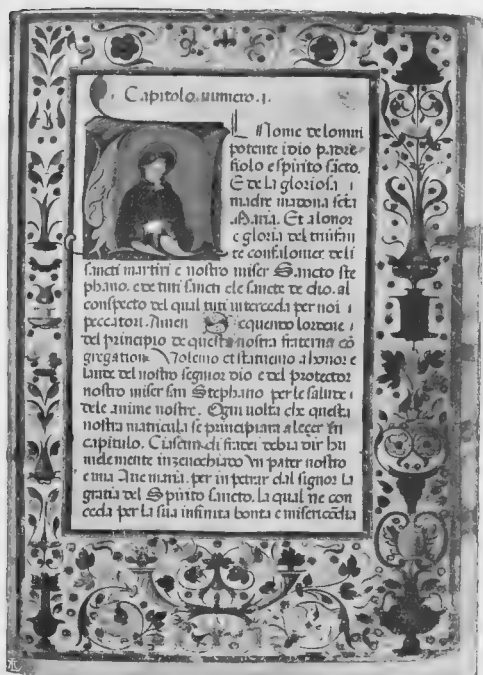 · Capitolo. numero .1.
L Nome de lomni
potente idio padre
fiolo e spirito sācto.
E de la gloriosa ı
madre madona scta
Maria. Et alonor
e gloria del triūfan
te confaloner de li
sancti martiri e nostro miser Sancto ste
phano. e de tuti sancti e le sancte de dio. al
conspecto del qual tuti interceda per noi ı
peccatori. Amen Sequendo lordene ı
del principio de questa nostra fraterna cō
gregation. Volemo et statuemo a honor e
laude del nostro segnior dio e del protector
nostro miser san Stephano per le salute ı
dele anime nostre. Ogni uolta che questa
nostra matricula se principiara a lecer in
capitulo. Ciascun di fratei debia dir hu
melemente inzenochiado vn pater nostro
e una Aue maria. per inpetrar dal signor la
gratia del Spirito sancto. la qual ne con
ceda per la sua infinita bonta e misericōdia